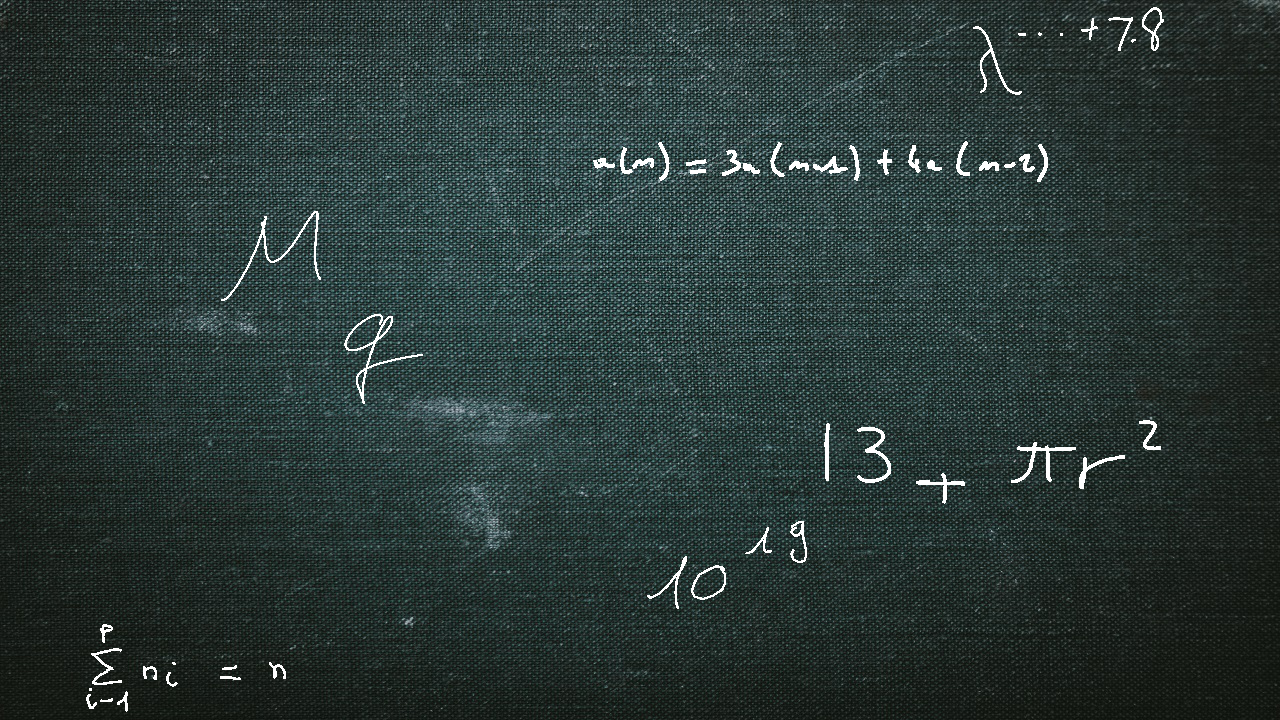 λ^{... + 7.8}
a(n) = 3a(n-1) + 4a(n-2)
M
q
13 + πr²
10^{19}
\sum_{i-1}^{p} n_i = n